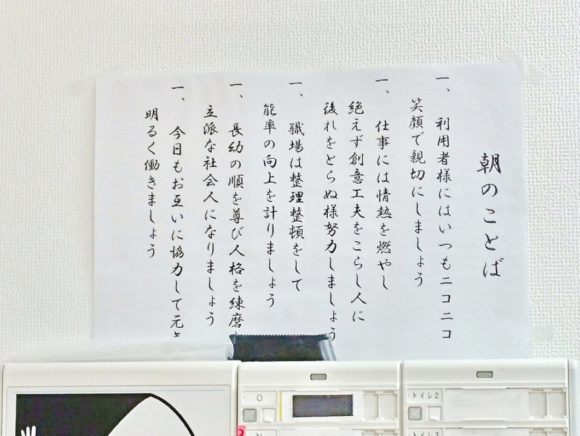 朝のことば
一、利用者様にはいつもニコニコ
笑顔で親切にしましょう
一、仕事には情熱を燃やし
絶えず創意工夫をこらし人に
後れをとらぬ様努力しましょう
一、職場は整理整頓をして
能率の向上を計りましょう
一、長幼の順を尊び人格を練磨
立派な社会人になりましょう
一、今日もお互いに協力して元
明るく働きましょう
トイレ2